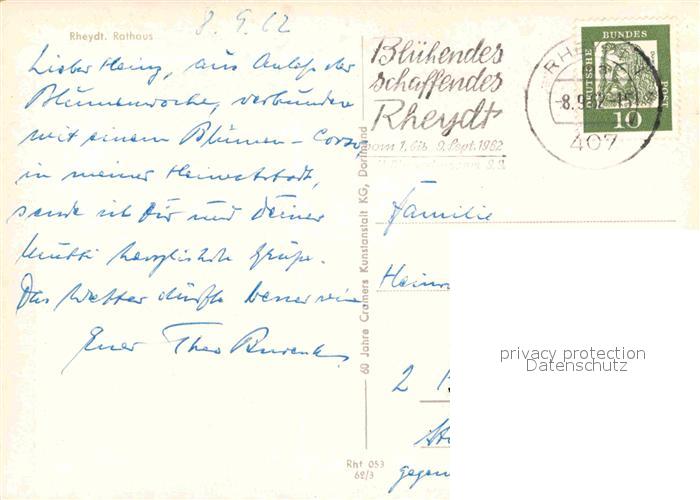 8.9.62
Rheydt. Rathaus
Lieber Heinz, aus Anlaß der
Blumenwoche, verbunden
mit einem Blumen-Corso,
in meiner Heimatstadt,
sende ich Dir und Deiner
Mutti herzlichste Grüße.
Das Wetter dürfte besser sein
Euer Theo
60 Jahre Cramers Kunstanstalt KG, Dortmund
Rht 053
62/3
Blühendes
schaffendes
Rheydt
vom 1. bis 9. Sept. 1962
DEUTSCHE BUNDESPOST
10
-8.9.62-15
407
Familie
2
gegen
privacy protection
Datenschutz